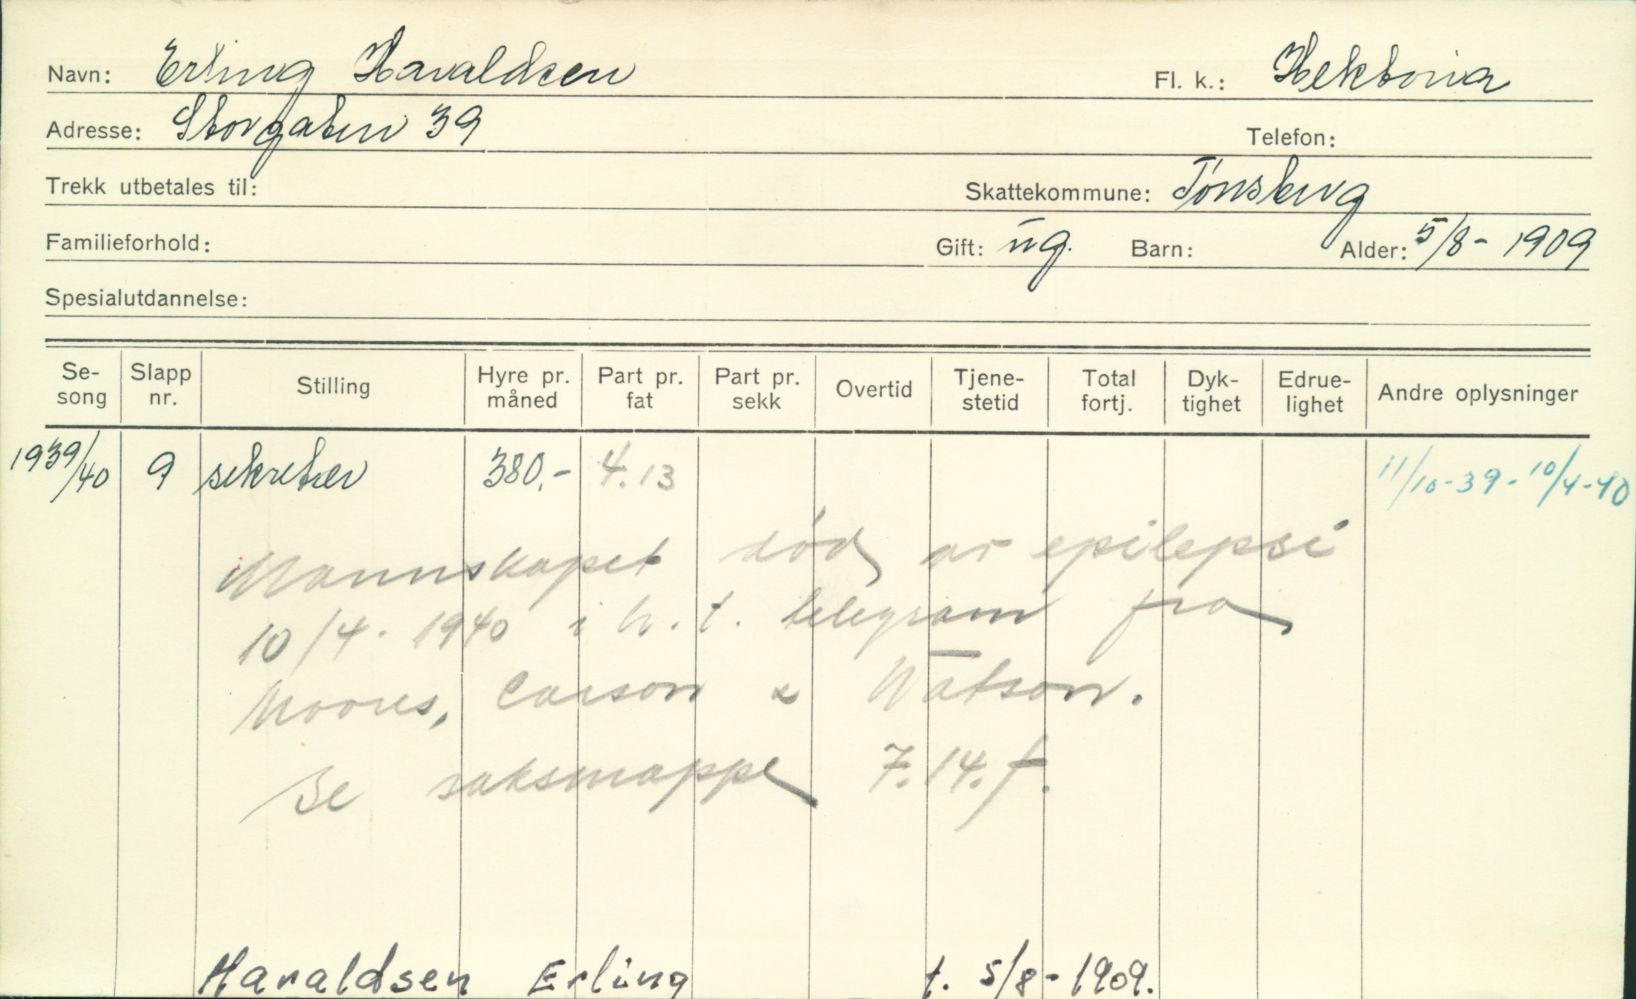 Navn: Erling Haraldsen Fl. k.: Hektoria
Adresse: Storgaten 39 Telefon:
Trekk utbetales til: Skattekommune: Tönsberg
Familieforhold: Gift: ug. Barn: Alder: 5/8 - 1909
Spesialutdannelse:
Se-song Slapp nr. Stilling Hyre pr. måned Part pr. fat Part pr. sekk Overtid Tjene-stetid Total fortj. Dyk-tighet Edrue-lighet Andre oplysninger
1939/40 9 sekretær 380,- 4.13 11/10-39 - 10/4-40
Mannskapet død av epilepsi
10/4. 1940 i h. t. telegram fra
Moores, Carson & Watson.
Se saksmappe 7.14.f.
Haraldsen Erling f. 5/8-1909.